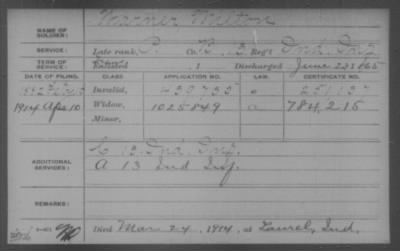 NAME OF SOLDIER: Warner Milton
SERVICE: Late rank, P. Co. K, 13 Reg't Ind. Inf.
TERM OF SERVICE: Enlisted , 1 Discharged June 23 1865
DATE OF FILING. CLASS APPLICATION NO. LAW. CERTIFICATE NO.
Invalid, 439733
1914 Apr 10 Widow, 1025849 a 784,215
Minor,
ADDITIONAL SERVICES: 13 Ind. Inf.
A 13 Ind Inf.
REMARKS:
Died Mar 24, 1914, at Laurel, Ind.